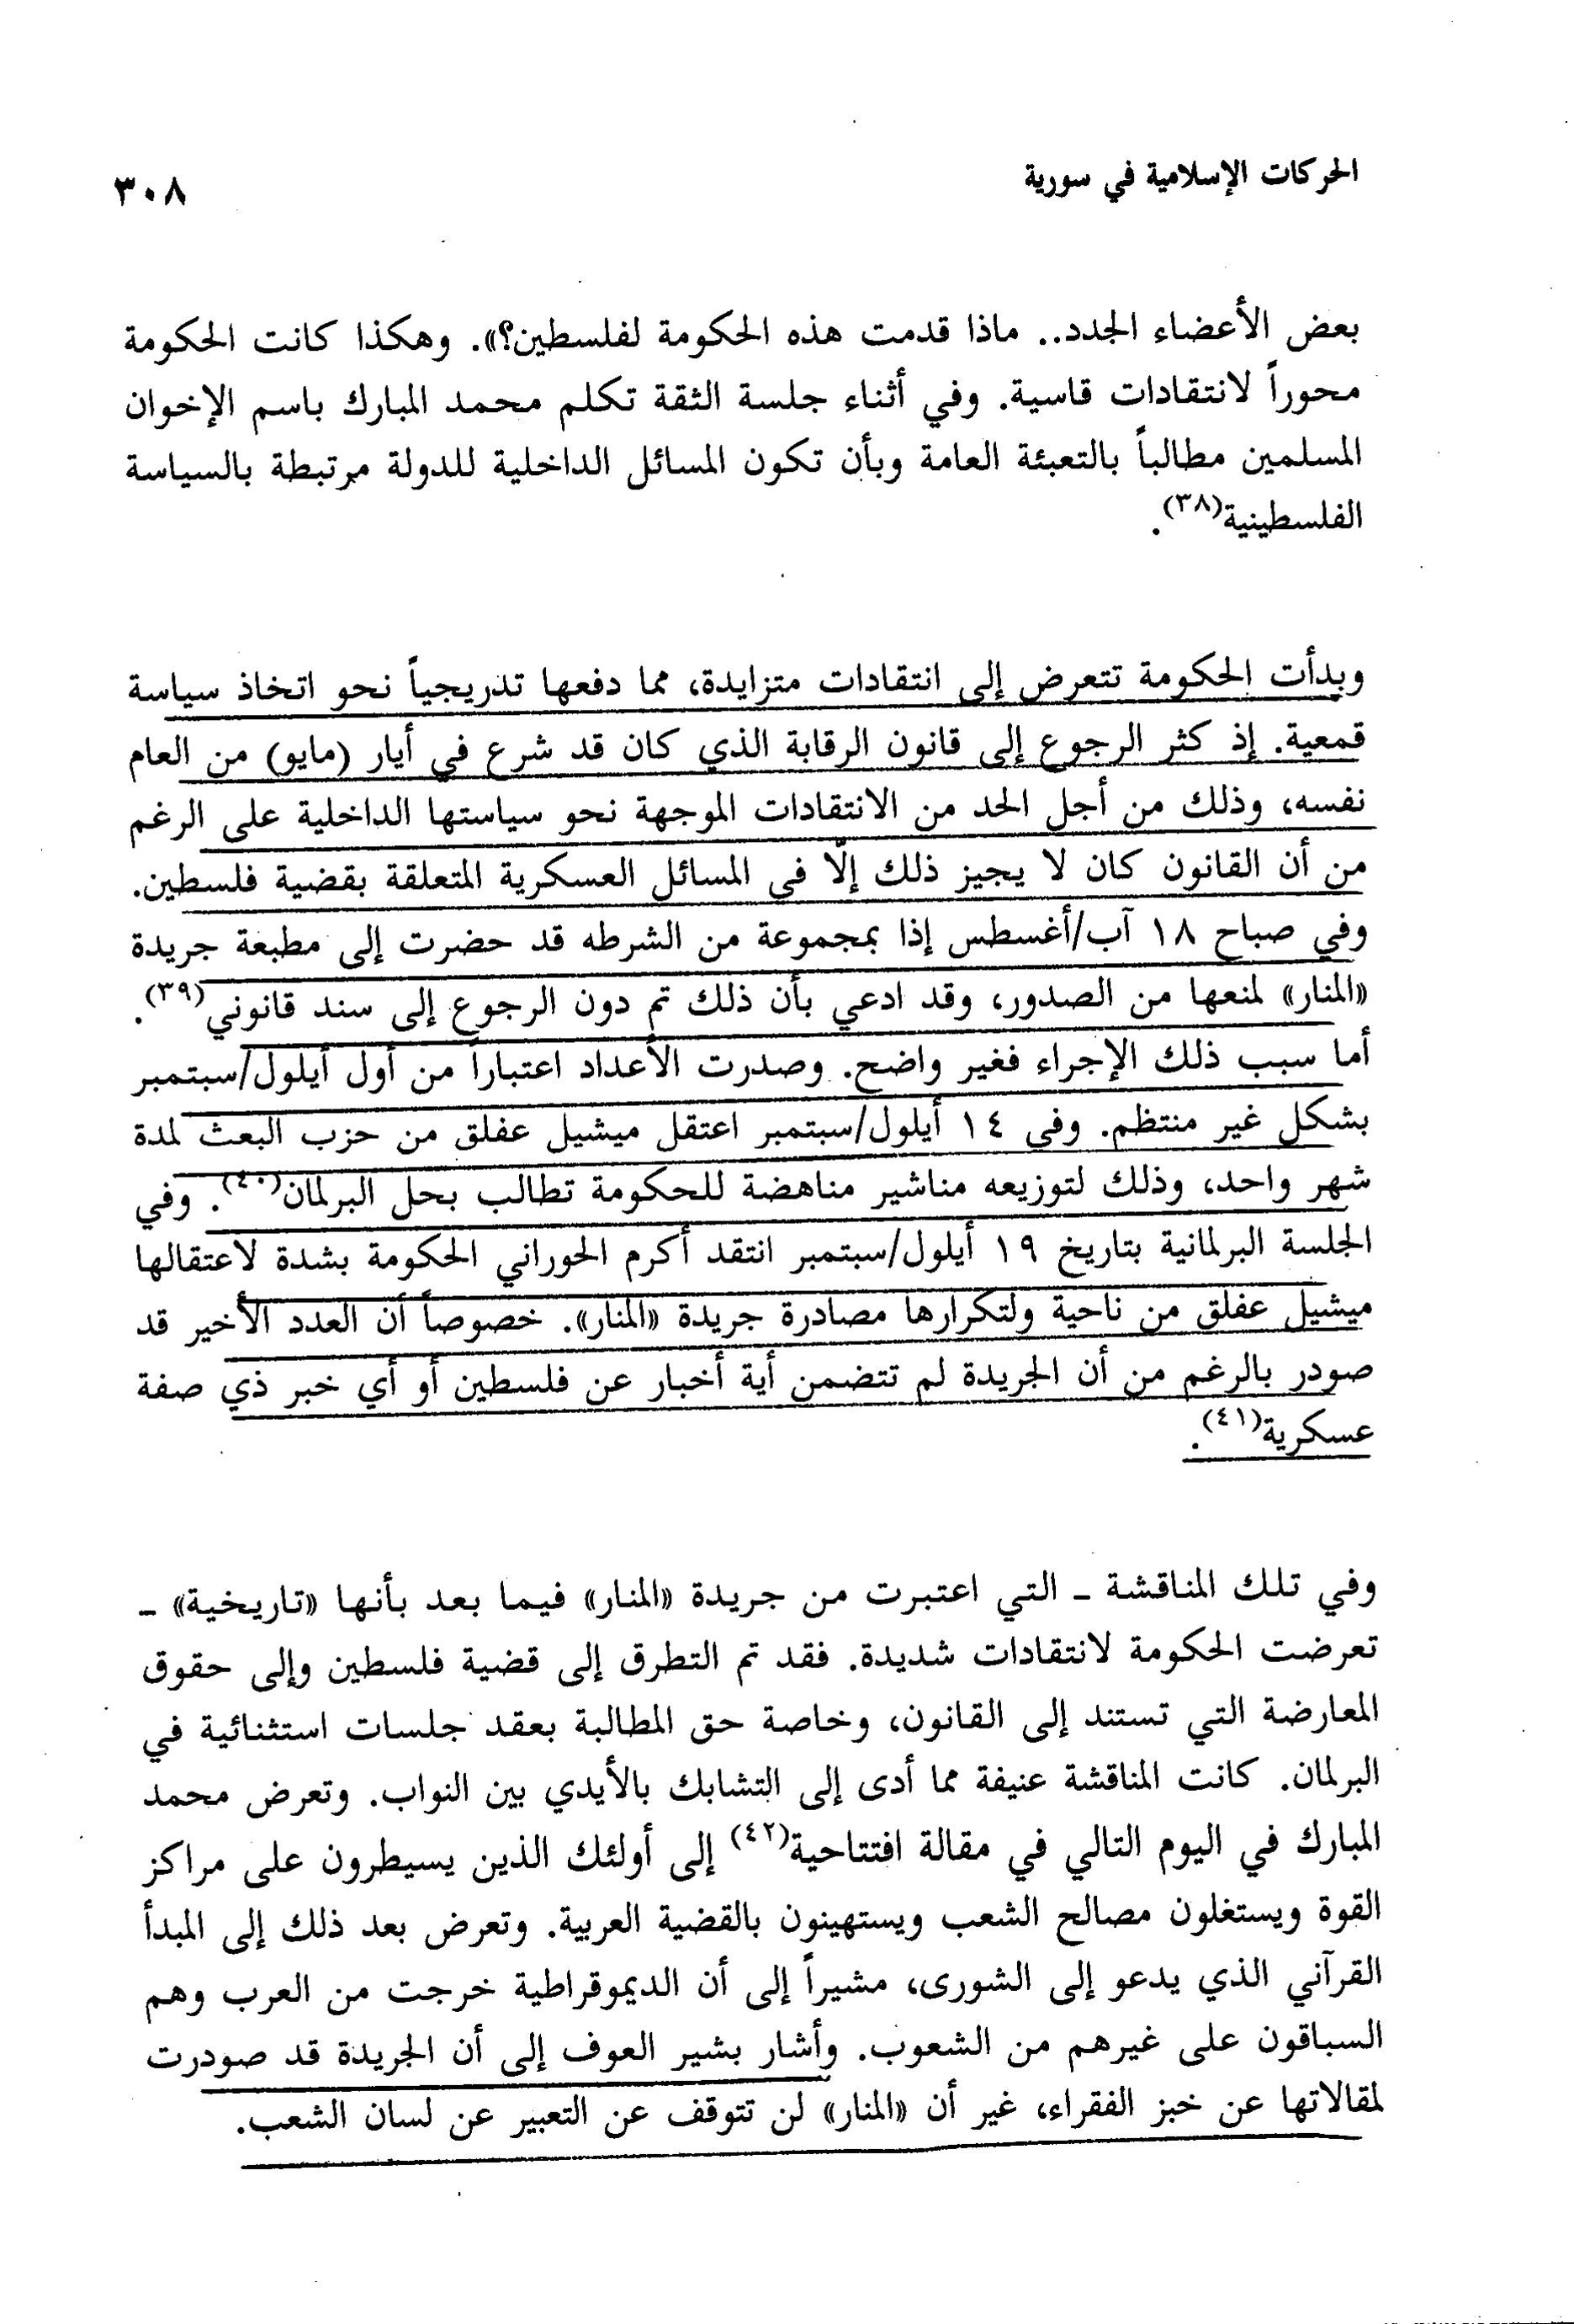 الحركات الإسلامية في سورية
٣٠٨
بعض الأعضاء الجدد.. ماذا قدمت هذه الحكومة لفلسطين؟». وهكذا كانت الحكومة
محوراً لانتقادات قاسية. وفي أثناء جلسة الثقة تكلم محمد المبارك باسم الإخوان
المسلمين مطالباً بالتعبئة العامة وبأن تكون المسائل الداخلية للدولة مرتبطة بالسياسة
الفلسطينية(٣٨).
وبدأت الحكومة تتعرض إلى انتقادات متزايدة، مما دفعها تدريجياً نحو اتخاذ سياسة
قمعية. إذ كثر الرجوع إلى قانون الرقابة الذي كان قد شرع في أيار (مايو) من العام
نفسه، وذلك من أجل الحد من الانتقادات الموجهة نحو سياستها الداخلية على الرغم
من أن القانون كان لا يجيز ذلك إلّا في المسائل العسكرية المتعلقة بقضية فلسطين.
وفي صباح ١٨ آب/أغسطس إذا بمجموعة من الشرطه قد حضرت إلى مطبعة جريدة
«المنار» لمنعها من الصدور، وقد ادعي بأن ذلك تم دون الرجوع إلى سند قانوني(٣٩).
أما سبب ذلك الإجراء فغير واضح. وصدرت الأعداد اعتباراً من أول أيلول/سبتمبر
بشكل غير منتظم. وفي ١٤ أيلول/سبتمبر اعتقل ميشيل عفلق من حزب البعث لمدة
شهر واحد، وذلك لتوزيعه مناشير مناهضة للحكومة تطالب بحل البرلمان(٤٠). وفي
الجلسة البرلمانية بتاريخ ١٩ أيلول/سبتمبر انتقد أكرم الحوراني الحكومة بشدة لاعتقالها
ميشيل عفلق من ناحية ولتكرارها مصادرة جريدة «المنار». خصوصاً أن العدد الأخير قد
صودر بالرغم من أن الجريدة لم تتضمن أية أخبار عن فلسطين أو أي خبر ذي صفة
عسكرية(٤١).
وفي تلك المناقشة ـ التي اعتبرت من جريدة «المنار» فيما بعد بأنها «تاريخية» ـ
تعرضت الحكومة لانتقادات شديدة. فقد تم التطرق إلى قضية فلسطين وإلى حقوق
المعارضة التي تستند إلى القانون، وخاصة حق المطالبة بعقد جلسات استثنائية في
البرلمان. كانت المناقشة عنيفة مما أدى إلى التشابك بالأيدي بين النواب. وتعرض محمد
المبارك في اليوم التالي في مقالة افتتاحية(٤٢) إلى أولئك الذين يسيطرون على مراكز
القوة ويستغلون مصالح الشعب ويستهينون بالقضية العربية. وتعرض بعد ذلك إلى المبدأ
القرآني الذي يدعو إلى الشورى، مشيراً إلى أن الديموقراطية خرجت من العرب وهم
السباقون على غيرهم من الشعوب. وأشار بشير العوف إلى أن الجريدة قد صودرت
لمقالاتها عن خبز الفقراء، غير أن «المنار» لن تتوقف عن التعبير عن لسان الشعب.